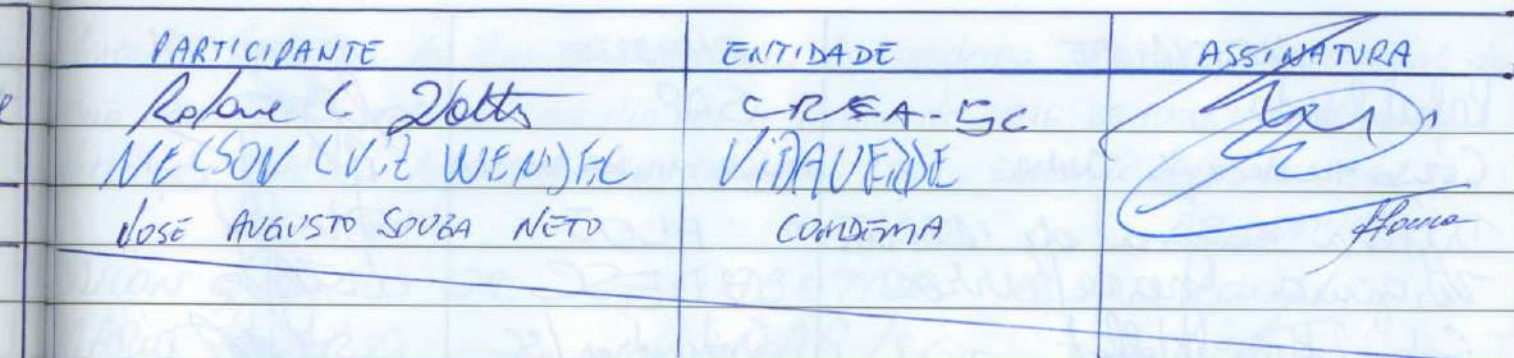 PARTICIPANTE ENTIDADE ASSINATURA
CREA-SC
NELSON LUIZ WENDEL VIDAVERDE
JOSÉ AUGUSTO SOUZA NETO CONDEMA